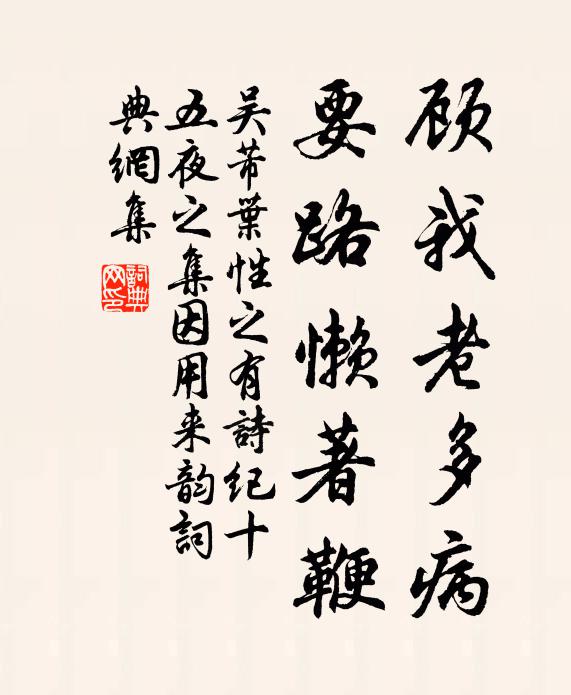 顾我老多病
要路懒著鞭
吴芾葉性之有詩纪十
五夜之集因用来韵詞
典網集
詞典网印